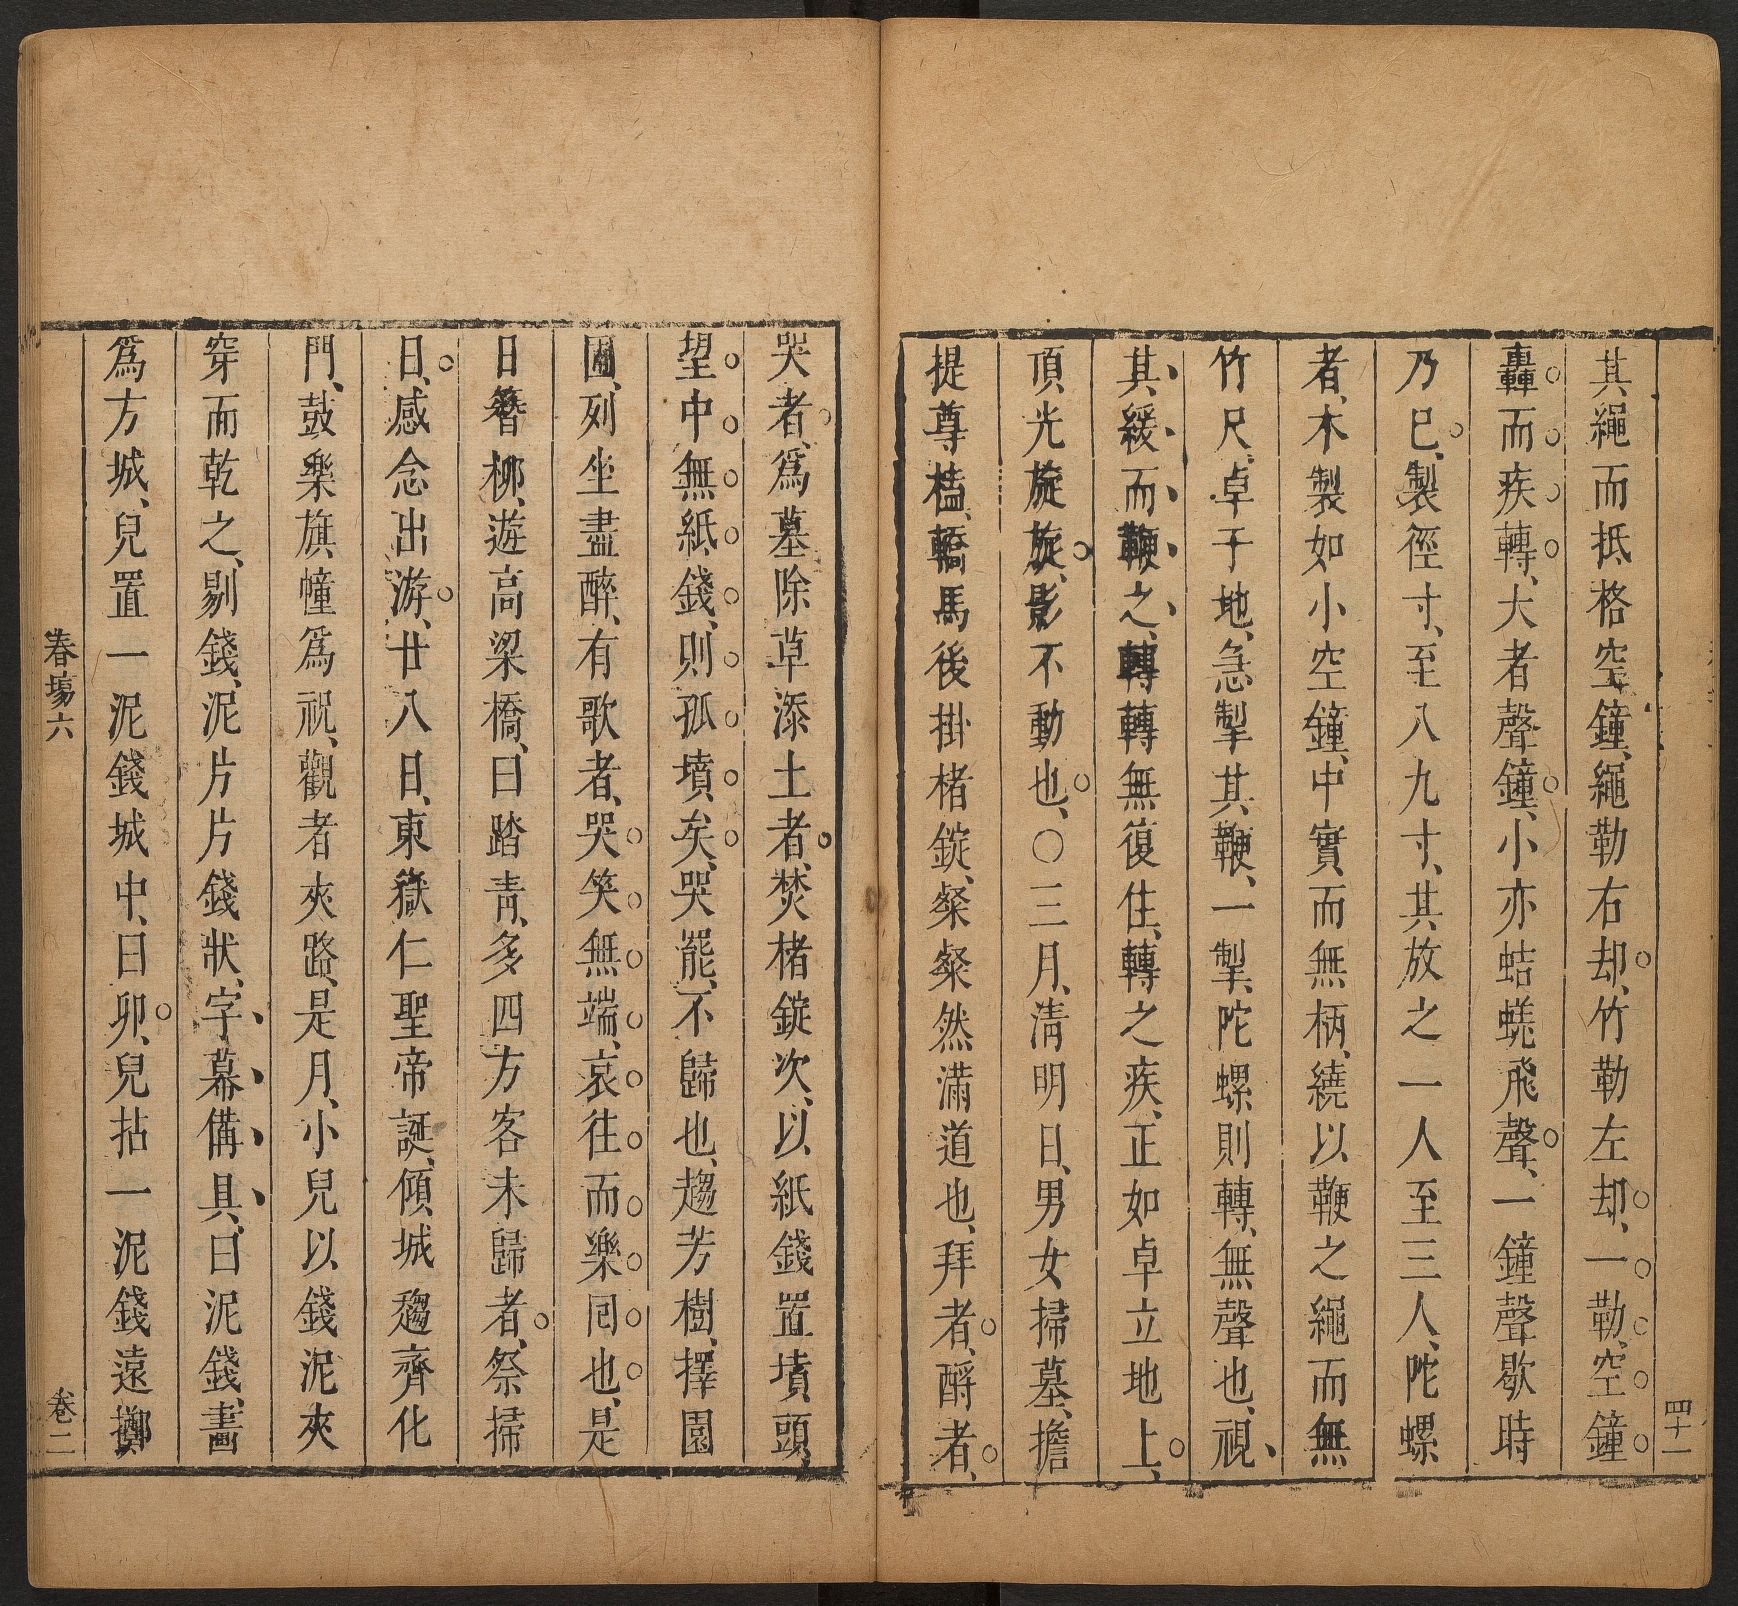 其繩而抵格空鐘、繩勒右却、竹勒左却、一勒、空鐘
轟而疾轉、大者聲鐘、小亦蛣蜣飛聲、一鐘聲歇時
乃已、製徑寸、至八九寸、其放之一人至三人、陀螺
者、木製如小空鐘、中實而無柄、繞以鞭之繩而無
竹尺、卓于地、急掣其鞭、一掣、陀螺則轉、無聲也、視
其緩而鞭之、轉轉無復住、轉之疾、正如卓立地上、
頂光旋旋、影不動也、○三月、清明日、男女掃墓、擔
提尊榼、轎馬後掛楮錠、粲粲然滿道也、拜者、酹者、
四十一
哭者、爲墓除草添土者、焚楮錠次、以紙錢置墳頭、
望中無紙錢、則孤墳矣、哭罷、不歸也、趨芳樹、擇園
圃、列坐盡醉、有歌者、哭笑無端、哀往而樂囘也、是
日簪柳、遊高梁橋、曰踏青、多四方客未歸者、祭掃
日、感念出游、廿八日、東嶽仁聖帝誕、傾城趨齊化
門、鼓樂旗幢爲祝、觀者夾路、是月、小兒以錢泥夾
穿而乾之、剔錢、泥片片錢狀、字幕備具、曰泥錢、畫
爲方城、兒置一泥錢城中、曰卯、兒拈一泥錢遠擲
春場六
卷二